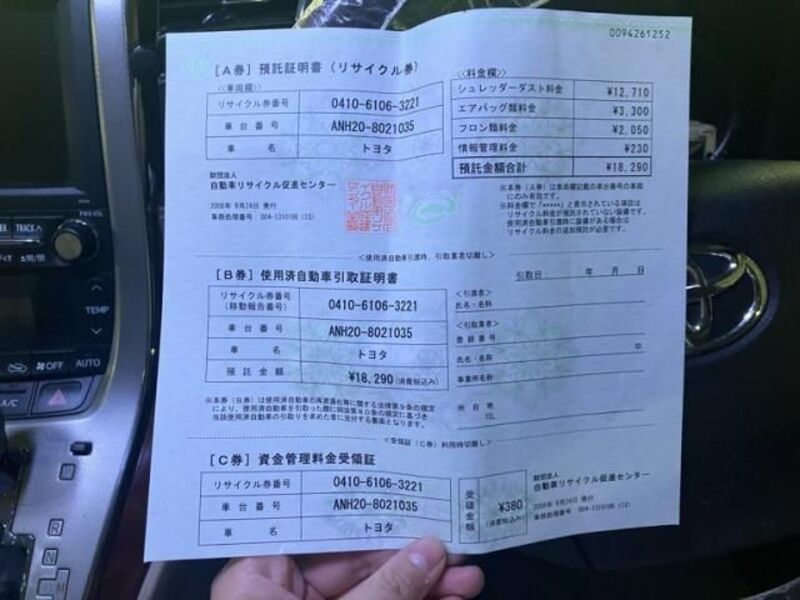 0094261252
[A券] 預託証明書 (リサイクル券)
<車両欄>
リサイクル券番号 0410-6106-3221
車台番号 ANH20-8021035
車名 トヨタ
<料金欄>
シュレッダーダスト料金 ¥12,710
エアバッグ類料金 ¥3,300
フロン類料金 ¥2,050
情報管理料金 ¥230
預託金額合計 ¥18,290
財団法人
自動車リサイクル促進センター
2008年 9月24日 発行
※本券(A券)は車両欄記載の車台番号の車両
にのみ有効です。
※料金欄で「*****」と表示されている項目は
リサイクル料金が預託されていない装備です。
使用済自動車引渡時に装備がある場合は
リサイクル料金の追加預託が必要です。
<使用済自動車引渡時、引取業者切離し>
[B券] 使用済自動車引取証明書
引取日: 年 月 日
リサイクル券番号
(移動報告番号) 0410-6106-3221
車台番号 ANH20-8021035
車名 トヨタ
預託金額 ¥18,290(消費税込み)
<引渡者>
氏名・名称
<引取業者>
登録番号
氏名・名称 印
事業所名
所在地
TEL
※本券(B券)は使用済自動車の再資源化等に関する法律第9条の規定
により、使用済自動車を引取った際に同法第80条の規定に基づき
当該使用済自動車の引取りを求めた者に交付する書面となります。
<受領証(C券)利用時切離し>
[C券] 資金管理料金受領証
リサイクル券番号 0410-6106-3221
車台番号 ANH20-8021035
車名 トヨタ
受領金額 ¥380
(消費税込み)
財団法人
自動車リサイクル促進センター
2008年 9月24日 発行
TRACK
TEMP
OFF
AUTO
A/C
R
N
M